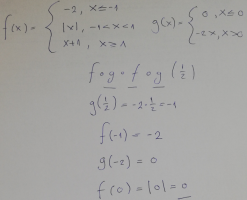 f(x) = { -2, x ≤ -1
|x|, -1 < x < 1
x+1, x ≥ 1
g(x) = { 0, x ≤ 0
-2x, x > 0
f ∘ g ∘ f ∘ g (1/2)
g(1/2) = -2·1/2 = -1
f(-1) = -2
g(-2) = 0
f(0) = |0| = 0